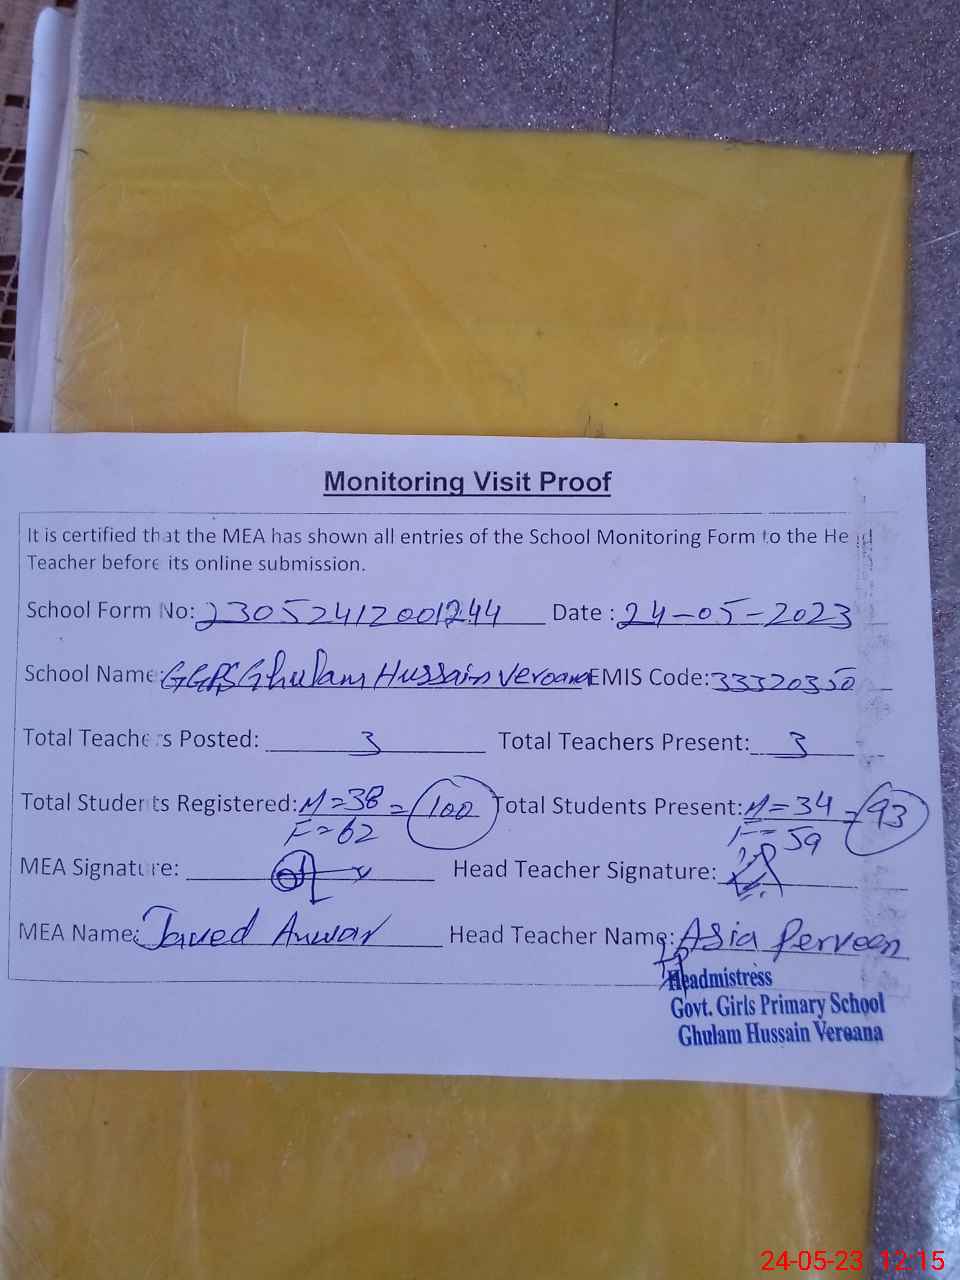 Monitoring Visit Proof
It is certified that the MEA has shown all entries of the School Monitoring Form to the Head
Teacher before its online submission.
School Form No: 23052412001244 Date : 24-05-2023
School Name: GGPS Ghulam Hussain Veroana EMIS Code: 33320350
Total Teachers Posted: 3 Total Teachers Present: 3
Total Students Registered: M=38 = 100 Total Students Present: M=34 = 93
F=62 F=59
MEA Signature: Head Teacher Signature:
MEA Name: Javed Anwar Head Teacher Name: Asia Perveen
Headmistress
Govt. Girls Primary School
Ghulam Hussain Veroana
24-05-23 12:15